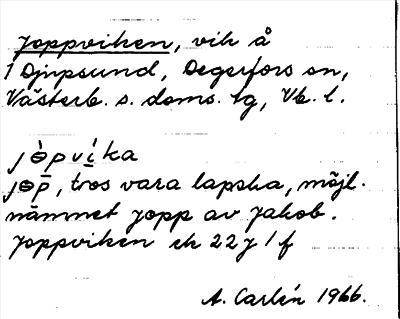 Joppviken, vik å
1 Djupsund, Degerfors sn,
Västerb. s. doms. tg, Vb. l.
jòpvíka
jɵp̄, tros vara lapska, möjl.
nämnet Jopp av Jakob.
Joppviken ek 22 J 1 f
A. Carlén 1966.